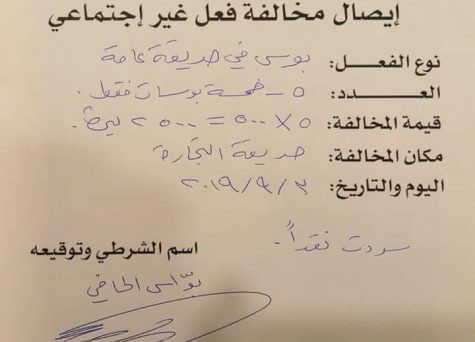 إيصال مخالفة فعل غير إجتماعي
نوع الفعل: بوس في حديقة عامة
العدد: ٥ - خمسة بوسات فقط.
قيمة المخالفة: ٥ × ٥٠٠ = ٢٥٠٠ ليرة.
مكان المخالفة: حديقة التجارة
اليوم والتاريخ: ٢٠١٩/٩/٣
سددت نقداً.
اسم الشرطي وتوقيعه
بوّاس الحافي